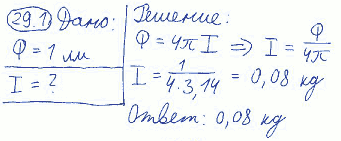 29.1 Дано:
Φ = 1 лм
I = ?
Решение:
Φ = 4π I ⇒ I = Φ/4π
I = 1/4·3,14 = 0,08 кд
Ответ: 0,08 кд